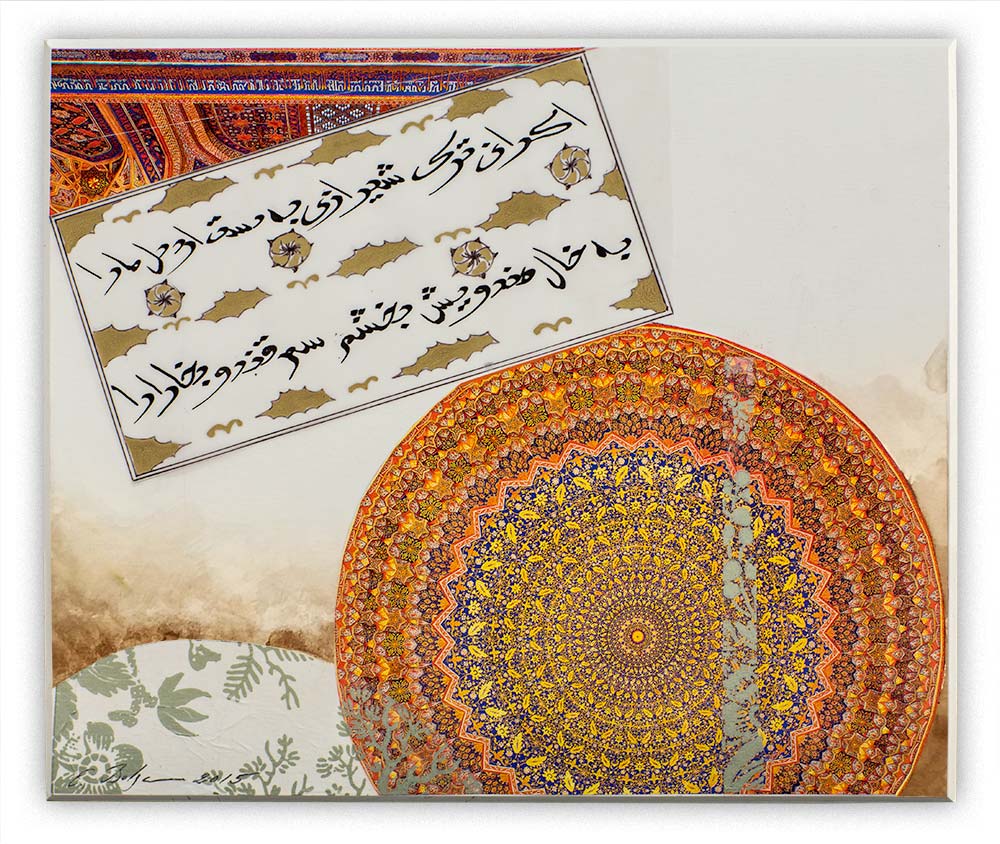 اکر ان ترک شیرازی به دست ارد دل مارا
به خال هندویش بخشم سمر قند و بخارا را
2015